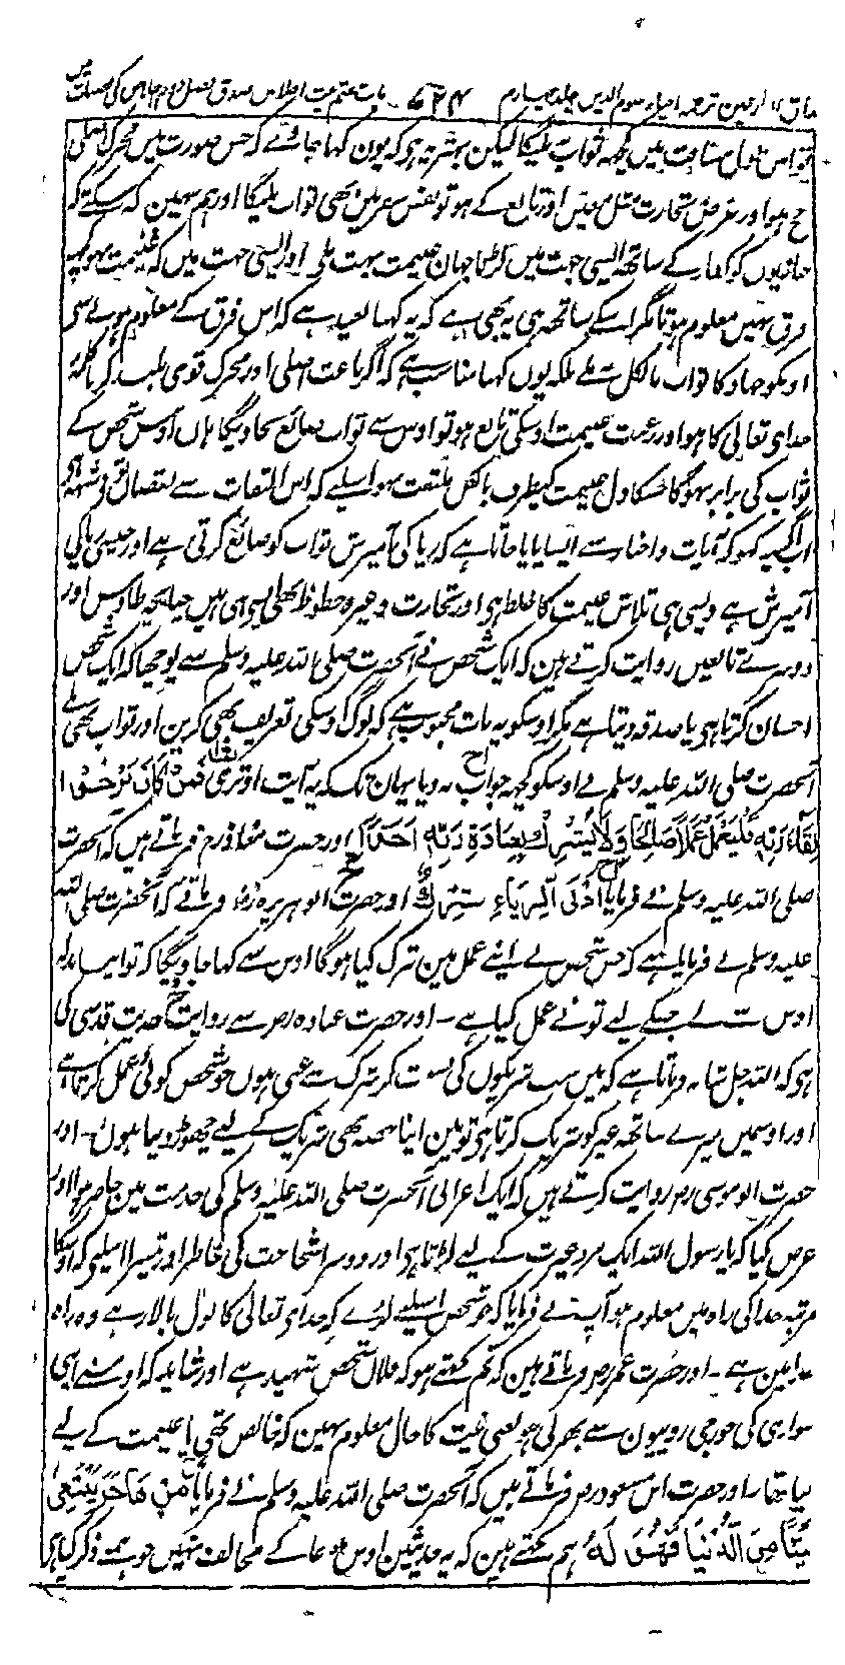 مذاق العارفین ترجمہ احیاء علوم الدین جلد چہارم ۶۲۴ باب ہفتم نیت اخلاص صدق فصل دوم اخلاص کی فضیلت میں
تو اس طول مسافت میں کچھ ثواب ملیگا لیکن بہتر یہ ہو کہ یون کہا جاوے کہ جس صورت میں محرک اصلی
حج ہو اور غرض تجارت مثل معین اور تابع کے ہو تو نفس سفر مین بھی ثواب ملیگا اور ہم نہین کہ سکتے کہ
غازیوں کو کفار کے ساتھ ایسی جہت میں لڑنا جہان غنیمت بہت ملی اور ایسی جہت میں کہ غنیمت نہو کچھ
فرق نہیں معلوم ہوتا مگر اسکے ساتھ ہی یہ بھی ہے کہ یہ کہنا بعید ہے کہ اس فرق کے معلوم ہونے سی
اونکو جہاد کا ثواب بالکل نہ ملے بلکہ یوں کہنا مناسب ہے کہ اگر باعث اصلی اور محرک قوی بلند کرنا کلمہ
خدای تعالی کا ہو اور رغبت غنیمت اوسکی تابع ہو تو اوس سے ثواب ضائع نجاویگا ہاں اوس شخص کے
ثواب کی برابر نہوگا جسکا دل غنیمت کیطرف بالکل ملتفت نہو اسلیے کہ اس التفات سے نقصان تو بیشبہہ ہی
اب اگر یہ کہو کہ آیات و اخبار سے ایسا پایا جاتا ہے کہ ریا کی آمیزش ثواب کو ضائع کرتی ہے اور جیسی ریا کی
آمیزش ہے ویسی ہی تلاش غنیمت کا خلط ہی اور تجارت وغیرہ حظوظ بھی ایسی ہی ہیں چنانچہ طاؤس اور
دوسرے تابعین روایت کرتے ہین کہ ایک شخص نے آنحضرت صلی اللہ علیہ وسلم سے پوچھا کہ ایک شخص
احسان کرتا ہی یا صدقہ دیتا ہے مگر اوسکو یہ بات محبوب ہے کہ لوگ اوسکی تعریف بھی کرین اور ثواب بھی ملے
آنحضرت صلی اللہ علیہ وسلم نے اوسکو کچھ جواب نہ دیا یہان تک کہ یہ آیت اوتری فَمَنْ كَانَ يَرْجُوا
لِقَاءَ رَبِّهٖ فَلْيَعْمَلْ عَمَلًا صَالِحًا وَلَا يُشْرِكْ بِعِبَادَةِ رَبِّهٖ اَحَدًا اور حضرت معاذ رض فرماتے ہیں کہ آنحضرت
صلی اللہ علیہ وسلم نے فرمایا اَدْنَی الرِّیَاءِ شِرْكٌ اور حضرت ابو ہریرہ رض فرماتے کہ آنحضرت صلی اللہ
علیہ وسلم نے فرمایا ہے کہ جس شخص نے اپنے عمل مین شرک کیا ہوگا اوس سے کہا جاویگا کہ تو اپنا بدلہ
اوس سے لے جسکے لیے تو نے عمل کیا ہے۔ اور حضرت عبادہ رض سے روایت حدیث قدسی کی
ہی کہ اللہ جل شانہ فرماتا ہے کہ میں سب شریکوں کی نسبت کر شرک سے غنی ہوں جو شخص کوئی عمل کرتا ہے
اور اوسمیں میرے ساتھ غیر کو شریک کرتا ہی تو مین اپنا حصہ بھی شریک کے لیے چھوڑ دیتا ہوں۔ اور
حضرت ابو موسی رض روایت کرتے ہیں کہ ایک اعرابی آنحضرت صلی اللہ علیہ وسلم کی خدمت مین حاضر ہوا اور
عرض کیا کہ یا رسول اللہ ایک مرد غیرت کے لیے لڑتا ہی اور دوسرا شجاعت کی خاطر اور تیسرا اسلیے کہ اوسکا
مرتبہ خدا کی راہ میں معلوم ہو آپ نے فرمایا کہ جو شخص اسلیے لڑے کہ خدای تعالی کا بول بالا رہے وہ راہ
خدا مین ہے۔ اور حضرت عمر رض فرماتے ہین کہ تم کہتے ہو کہ فلاں شخص شہید ہے اور شاید کہ اوسنے اپنی
سواری کی خورجی روپیوں سے بھر لی ہو یعنی نیت کا حال معلوم نہین کہ خالص تھی یا غنیمت کے لیے
گیا تھا۔ اور حضرت ابن مسعود رض فرماتے ہیں کہ آنحضرت صلی اللہ علیہ وسلم نے فرمایا مَنْ هَاجَرَ يَبْتَغِي
شَيْئًا مِنَ الدُّنْيَا فَهُوَ لَهٗ ہم کہتے ہین کہ یہ حدیثین اوس مدعا کے مخالف نہین جو ہمنے ذکر کیا ہی